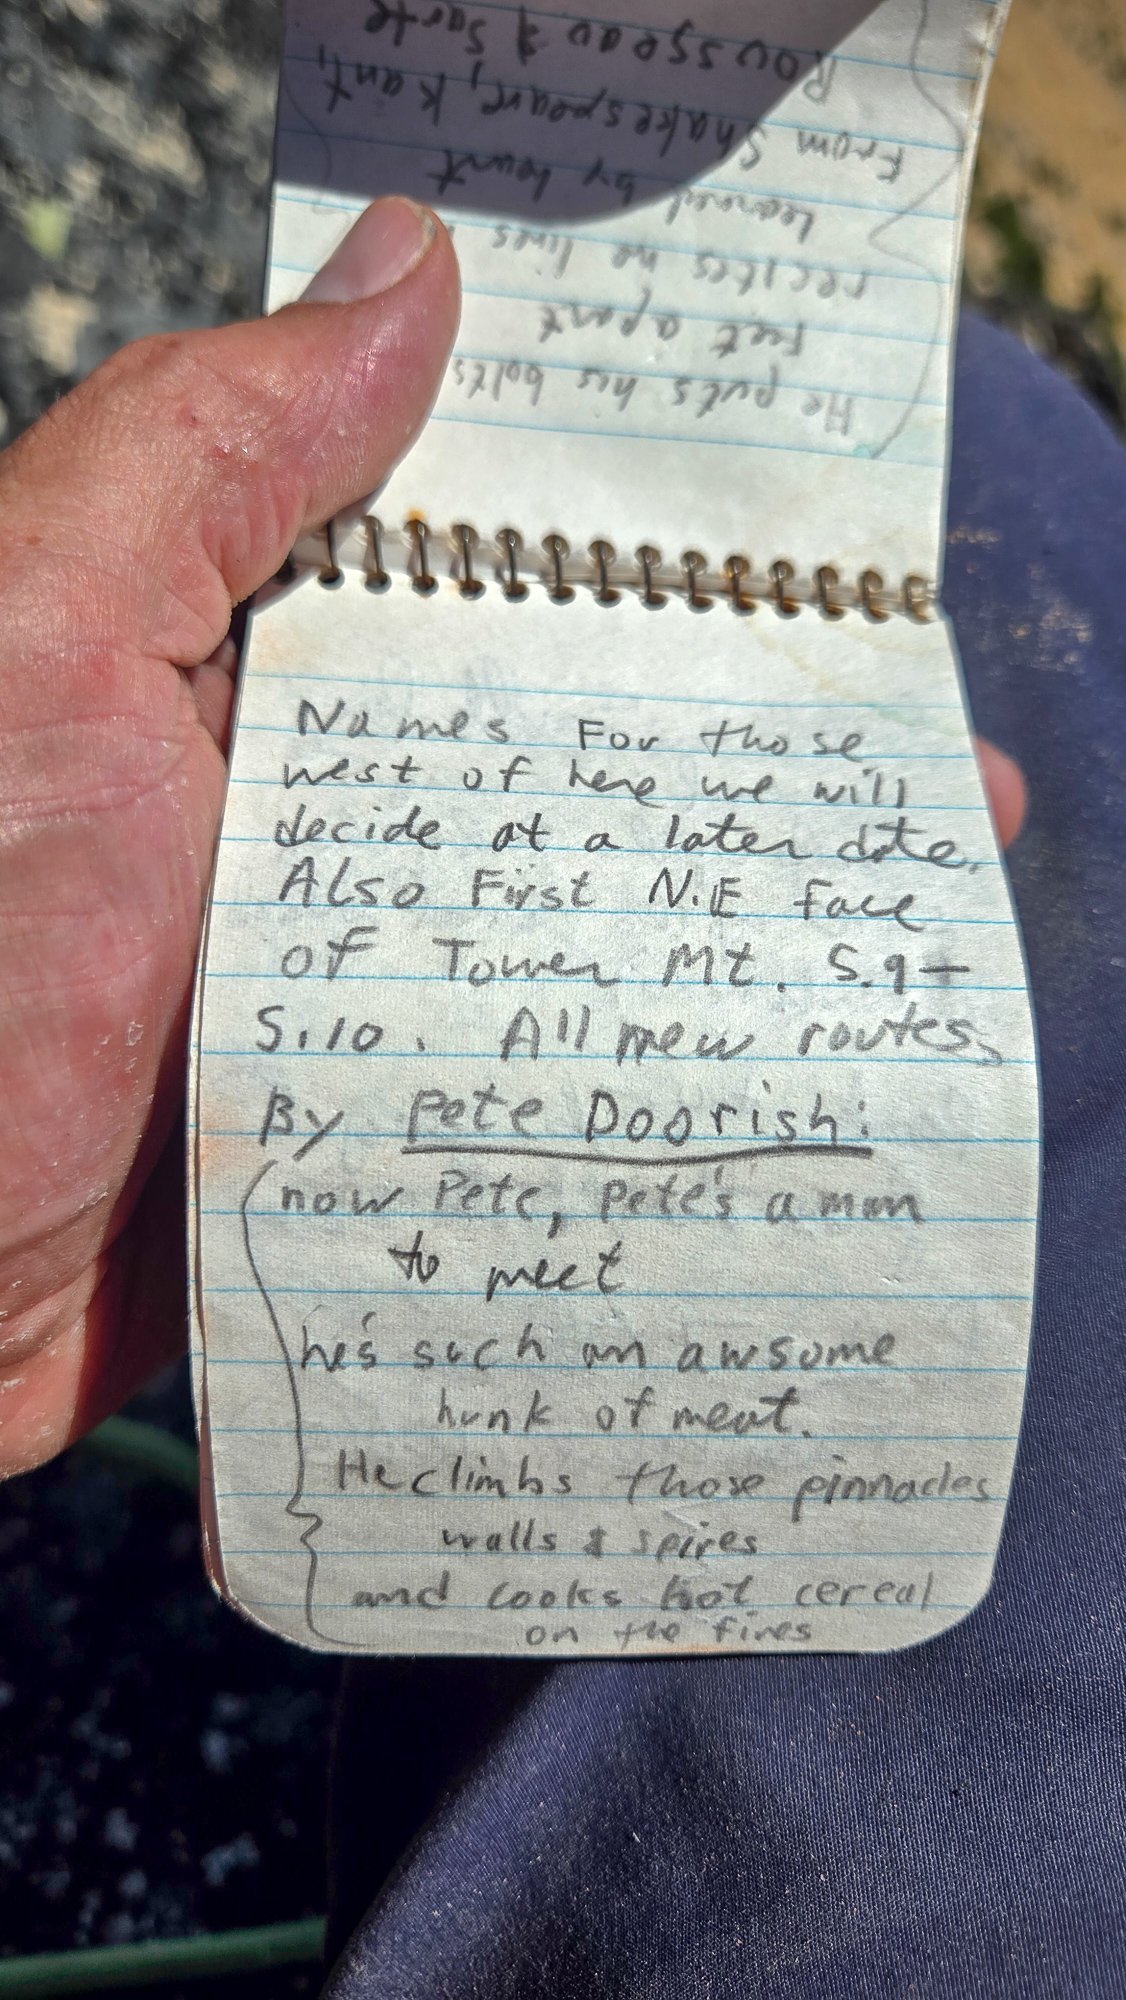 Names For those
west of here we will
decide at a later date.
Also First N.E Face
of Tower Mt. 5.9-
5.10. All new routes,
By Pete Doorish:
now Pete, Pete's a man
to meet
he's such an awsome
hunk of meat.
He climbs those pinnacles
walls & spires
and cooks hot cereal
on the fires
He puts his bolts
feet apart
recites he lines
Learned by heart
From Shakespeare, Kant,
Rousseau & Sarte